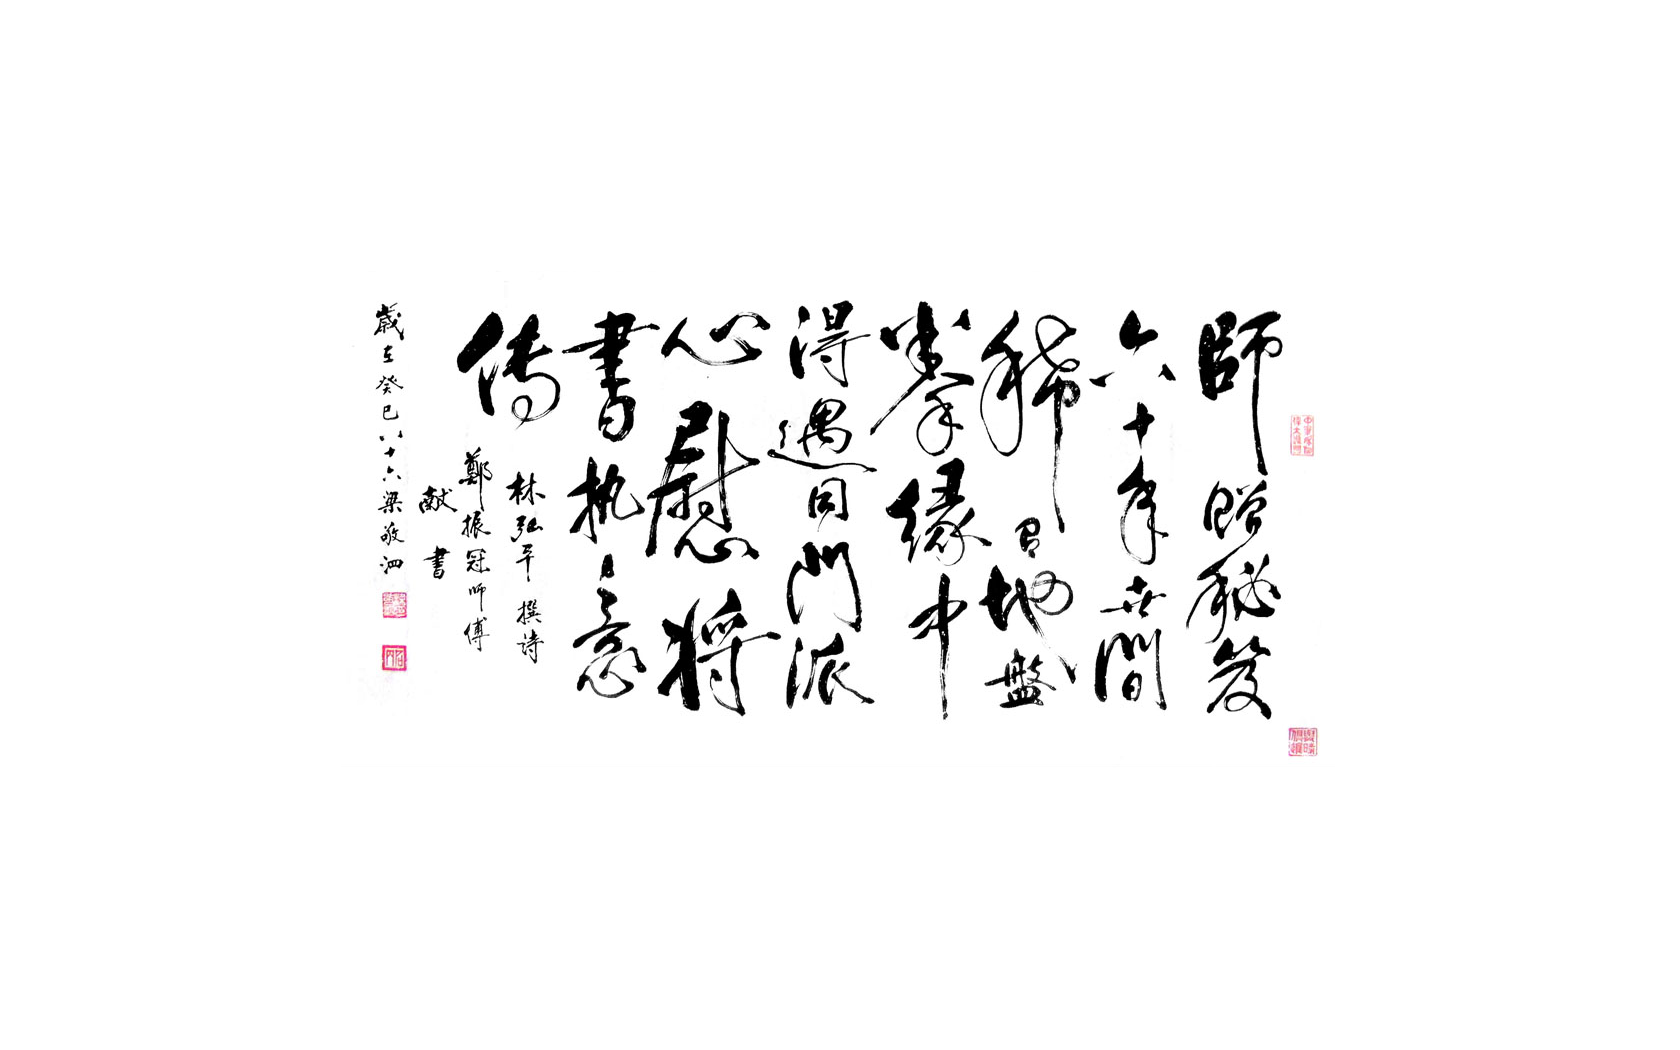 師贈秘笈
六十年世間
稀有地盤
拳緣中
得遇同門派
心慰將
書执意
傳
林弘平 撰詩
鄭振冠師傅
献書
歲在癸巳八十六梁敬泗